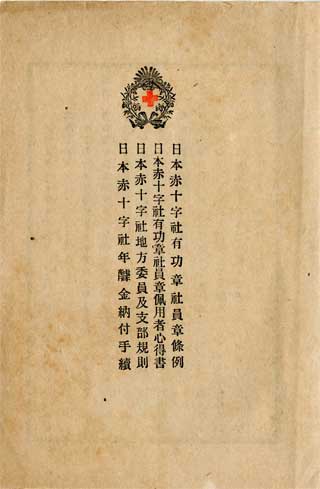 日本赤十字社有功章社員章條例
日本赤十字社有功章社員章佩用者心得書
日本赤十字社地方委員及支部規則
日本赤十字社年醵金納付手續